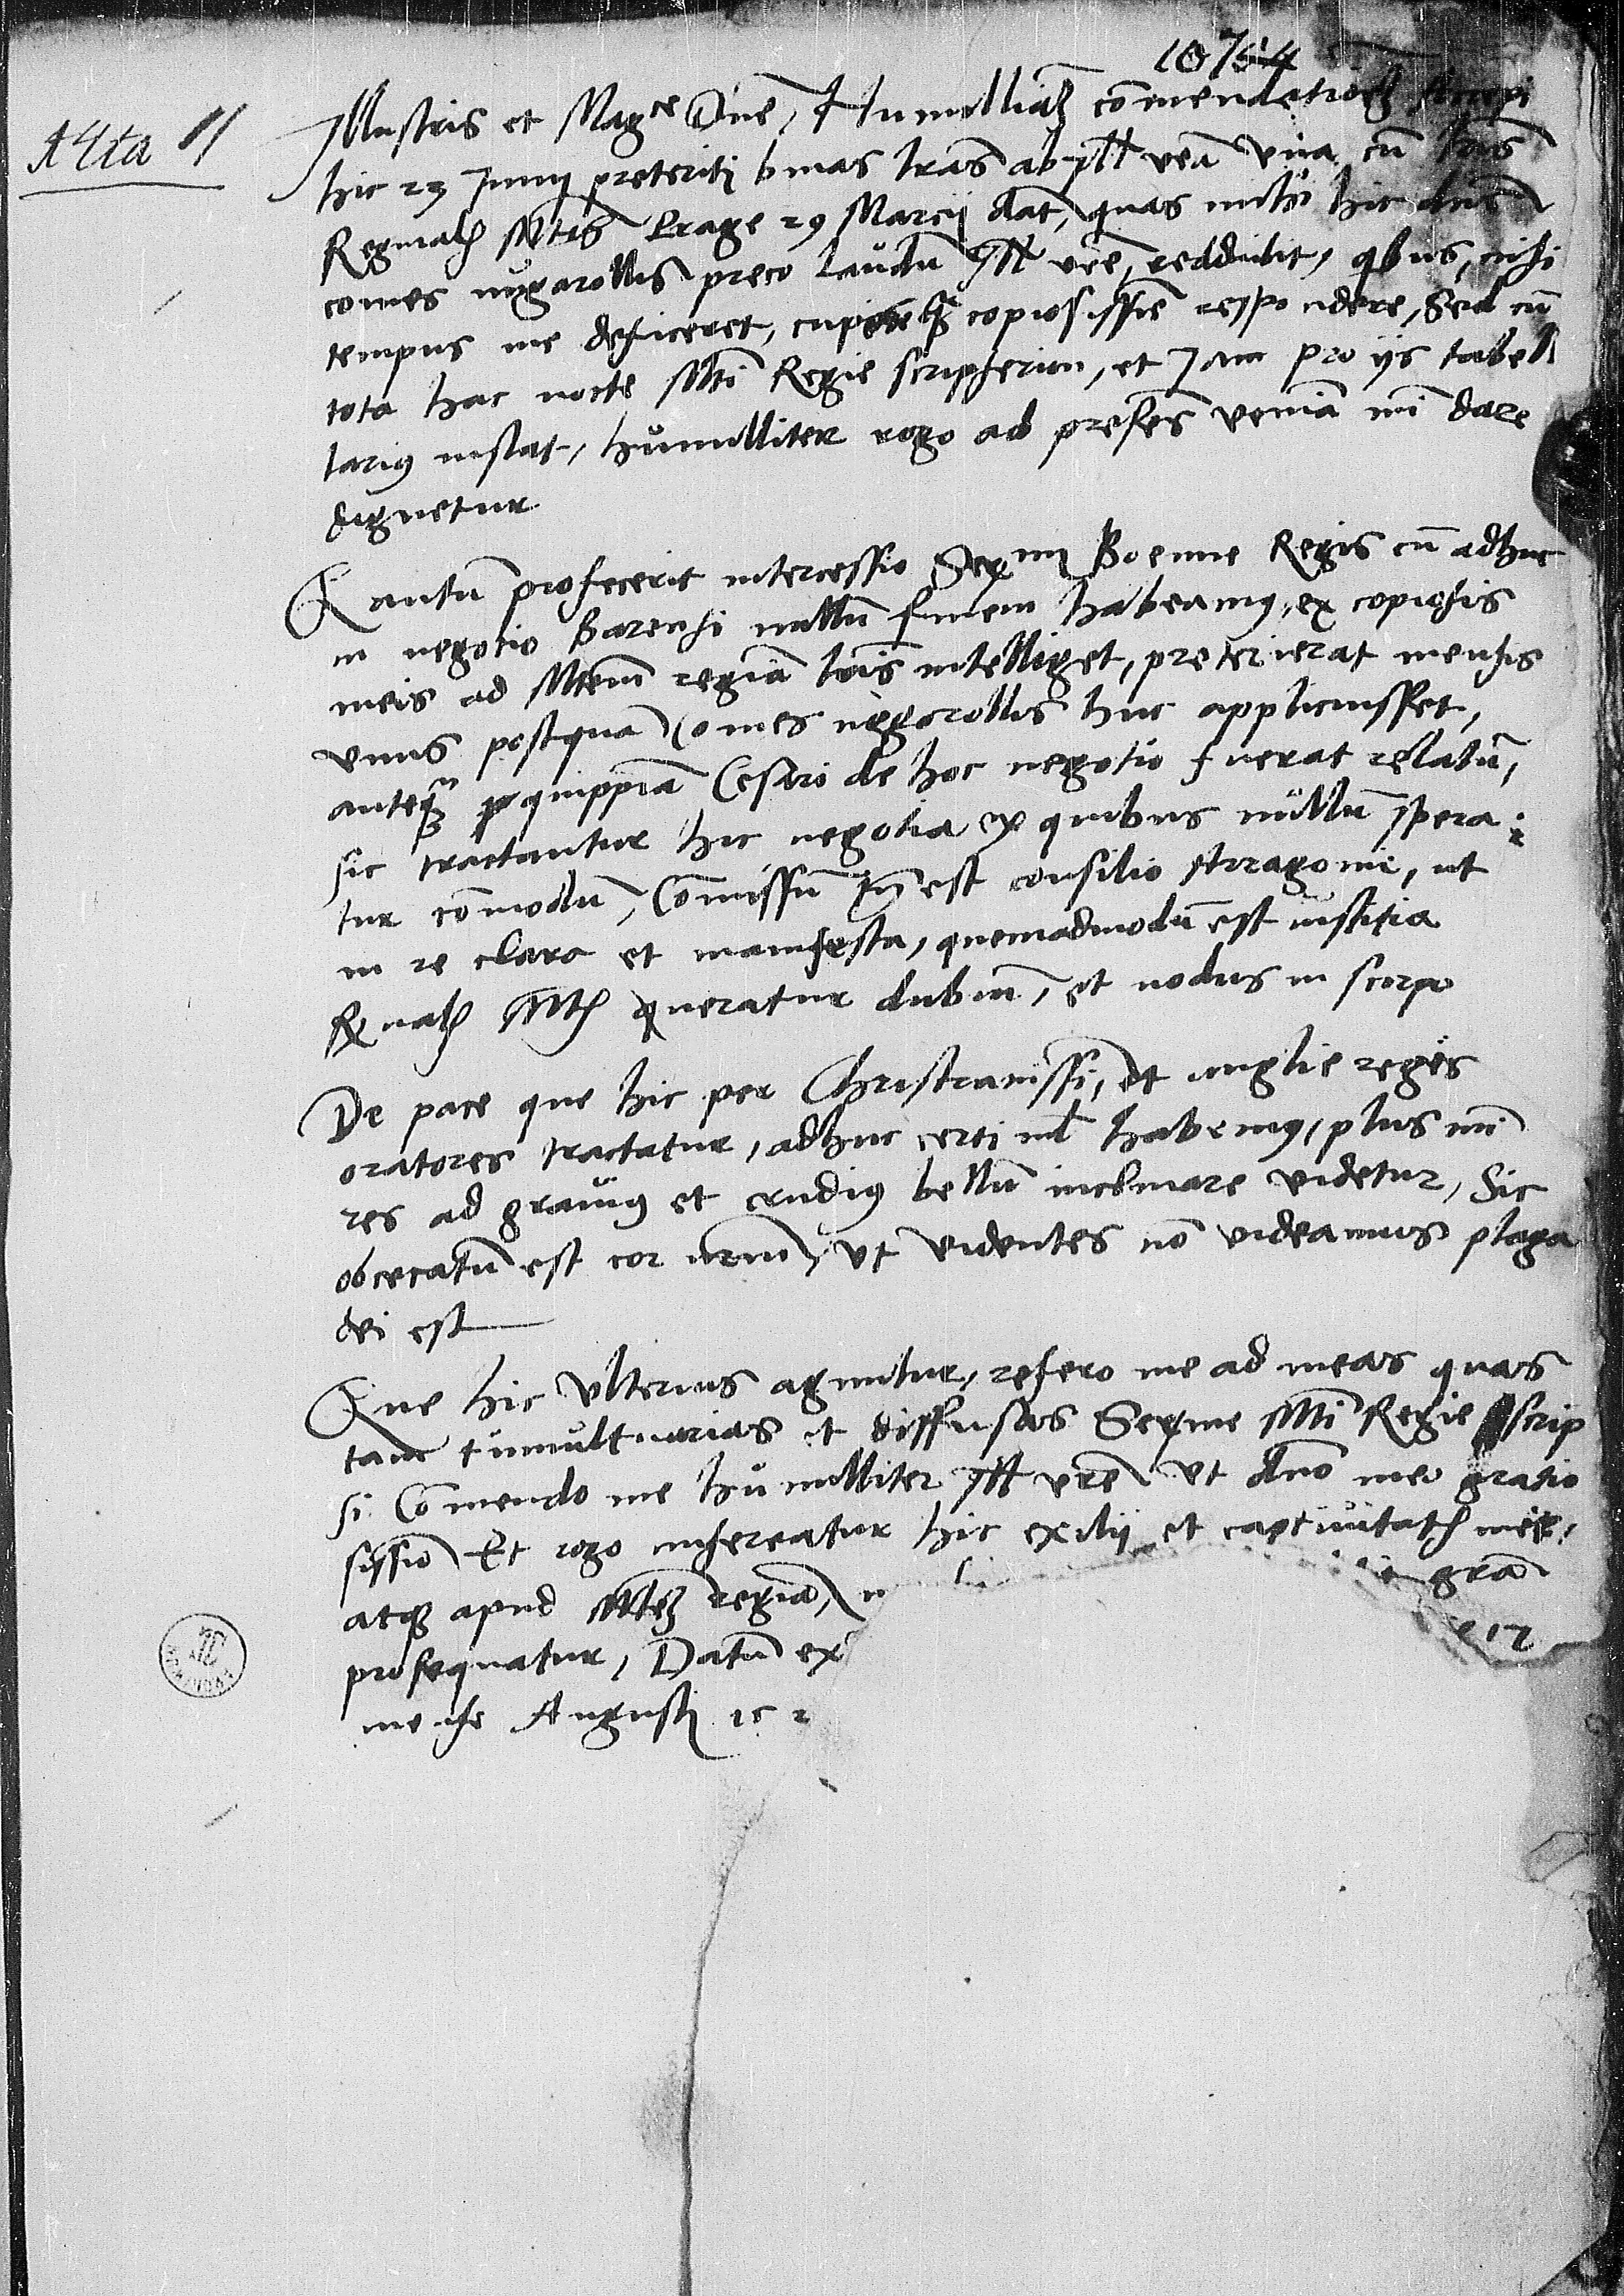 10754
Acta 11
Illustris et Mag^ce Dne, Humilliaʒ comendationeʒ Accepi
hic 23 Junij preteriti binas lras ab Ill vra vna cu lris
Reginalʒ Mtis Prage 29 Marcij dat, quas mihi hic dns
comes nugarollis preco laudu Ill vre, reddidit, qbus, nisi
tempus me deficeret, cuperem copiosissime respondere, Sed cu
tota hac nocte Mti Regie scripserim, et Jam pro ijs tabel
larius instat, humilliter rogo ad presens venia mi dare
dignetur
Quantu profecerit intercessio Serʳᵐⁱ Boemie Regis cu adhuc
in negotio Barensi nullu finem habeamus, ex copiosis
meis ad Mtem regia lris intelliget, preterierat mensis
vnus postqua Comes nogarollis huc applicuisset,
anteq quippia Cesari de hoc negotio fuerat relatu,
sic tractantur hic negotia ex quibus nullu spera
tur comodu, Comissu tn est consilio Arragonie, ut
in re clara et manifesta, quemadmodu est iustitia
Rgnalʒ Mtʒ queratur dubiu, et nodus in scirpo
De pace que hic per Christianissi, et anglie reges
oratores tractatur, adhuc certi nil habemus, plus mi
res ad gravius et crudius bellu inclinare videtur, Sic
obcecatu est cor nrm, vt videntes no videamus plaga
dei est
Que hic vlterius aguntur, refero me ad meas quas
tam tumultuarias et diffusas Serme Mti Regie scrip
si. Comendo me humilliter Ill vre vt dno meo gratio
sissimo Et rogo misereatur hic exilij et captiuitatʒ mee,
atqʒ apud Mteʒ regia, gra
prosequatur, Datu ex
mense Augusti 15 2